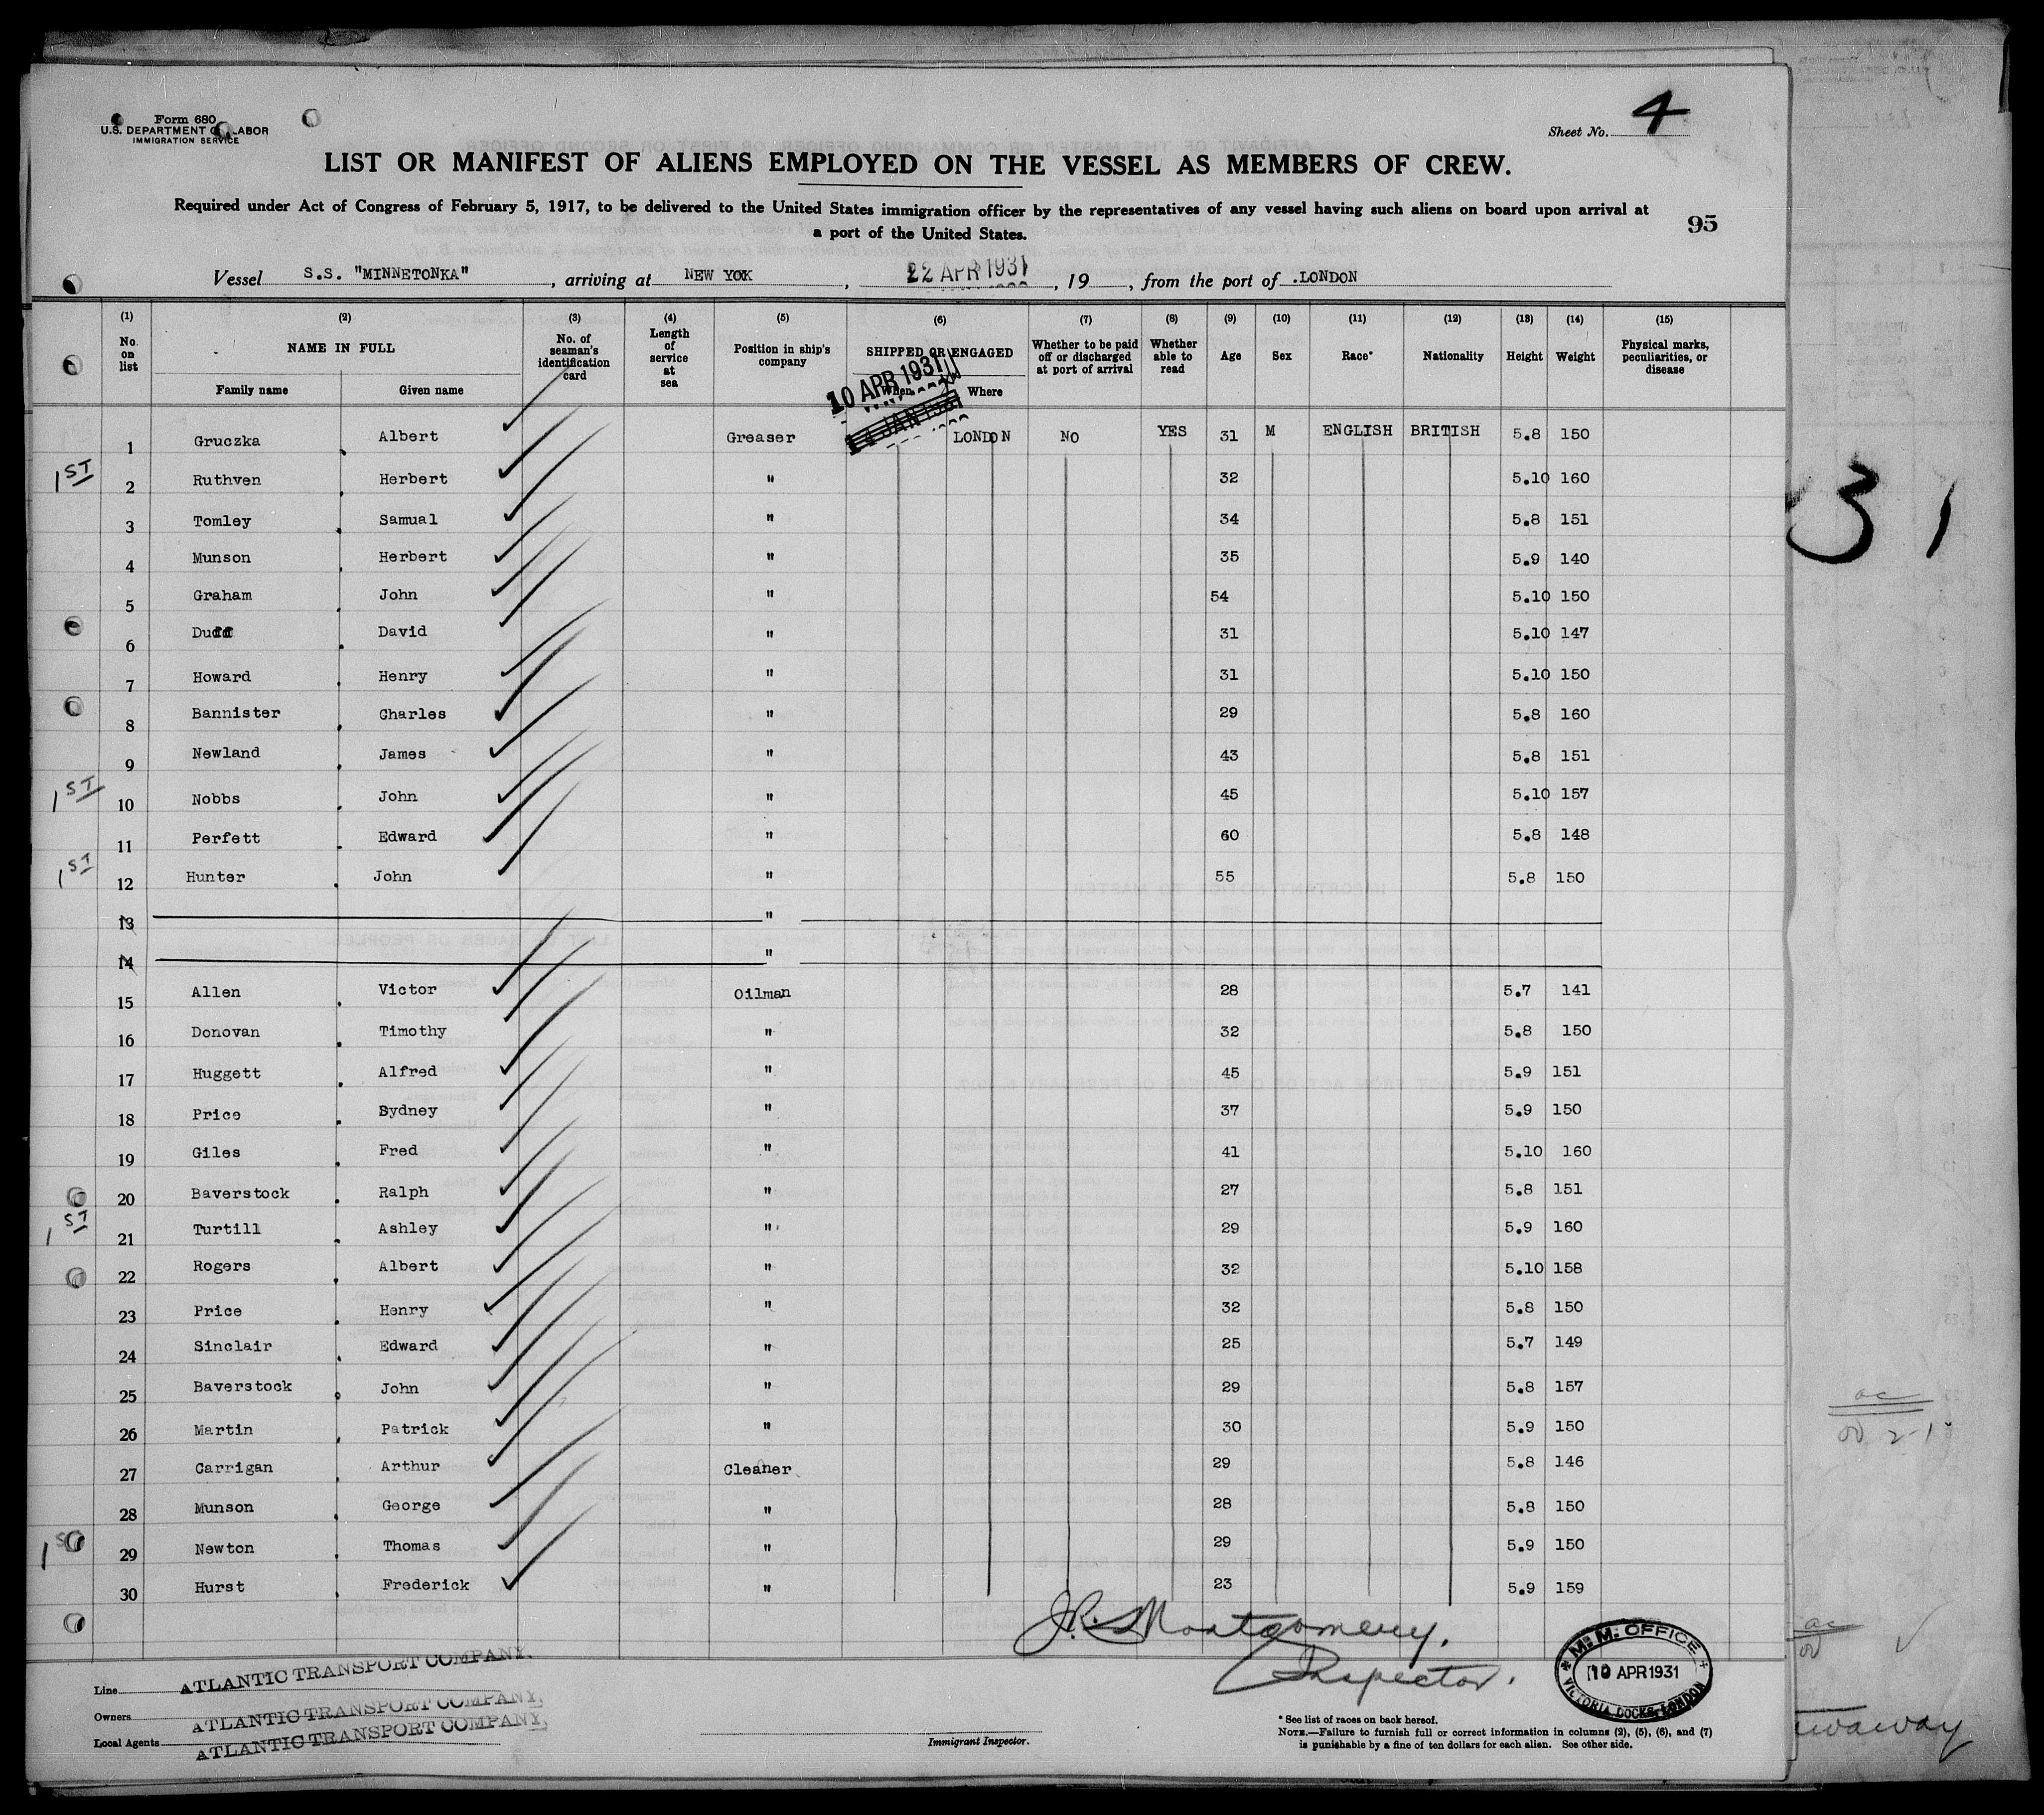 Form 680
U.S. DEPARTMENT OF LABOR
IMMIGRATION SERVICE
Sheet No. 4
LIST OR MANIFEST OF ALIENS EMPLOYED ON THE VESSEL AS MEMBERS OF CREW.
Required under Act of Congress of February 5, 1917, to be delivered to the United States immigration officer by the representatives of any vessel having such aliens on board upon arrival at
a port of the United States.
95
Vessel S.S. "MINNETONKA", arriving at NEW YOK, 22 APR 1931, 19, from the port of .LONDON
(1) (2) (3) (4) (5) (6) (7) (8) (9) (10) (11) (12) (13) (14) (15)
No. on list NAME IN FULL Family name Given name No. of seaman's identification card Length of service at sea Position in ship's company SHIPPED OR ENGAGED When Where Whether to be paid off or discharged at port of arrival Whether able to read Age Sex Race* Nationality Height Weight Physical marks, peculiarities, or disease
10 APR 1931
14 JAN 1931
1 Gruczka . Albert Greaser LONDON NO YES 31 M ENGLISH BRITISH 5.8 150
1ST 2 Ruthven . Herbert " 32 5.10 160
3 Tomley . Samual " 34 5.8 151
4 Munson . Herbert " 35 5.9 140
5 Graham . John " 54 5.10 150
6 Duff . David " 31 5.10 147
7 Howard . Henry " 31 5.10 150
8 Bannister . Charles " 29 5.8 160
9 Newland . James " 43 5.8 151
1ST 10 Nobbs . John " 45 5.10 157
11 Perfett . Edward " 60 5.8 148
1ST 12 Hunter . John " 55 5.8 150
13 "
14 "
15 Allen . Victor Oilman 28 5.7 141
16 Donovan . Timothy " 32 5.8 150
17 Huggett . Alfred " 45 5.9 151
18 Price . Sydney " 37 5.9 150
19 Giles . Fred " 41 5.10 160
20 Baverstock . Ralph " 27 5.8 151
1ST 21 Turtill . Ashley " 29 5.9 160
22 Rogers . Albert " 32 5.10 158
23 Price . Henry " 32 5.8 150
24 Sinclair . Edward " 25 5.7 149
25 Baverstock . John " 29 5.8 157
26 Martin . Patrick " 30 5.9 150
27 Carrigan . Arthur Cleaner 29 5.8 146
28 Munson . George " 28 5.8 150
1ST 29 Newton . Thomas " 29 5.9 150
30 Hurst . Frederick " 23 5.9 159
J.R. Montgomery.
Inspector.
M.M. OFFICE
10 APR 1931
VICTORIA DOCKS, LONDON
Line ATLANTIC TRANSPORT COMPANY.
Owners ATLANTIC TRANSPORT COMPANY.
Local Agents ATLANTIC TRANSPORT COMPANY.
Immigrant Inspector.
* See list of races on back hereof.
NOTE.—Failure to furnish full or correct information in columns (2), (5), (6), and (7)
is punishable by a fine of ten dollars for each alien. See other side.
31